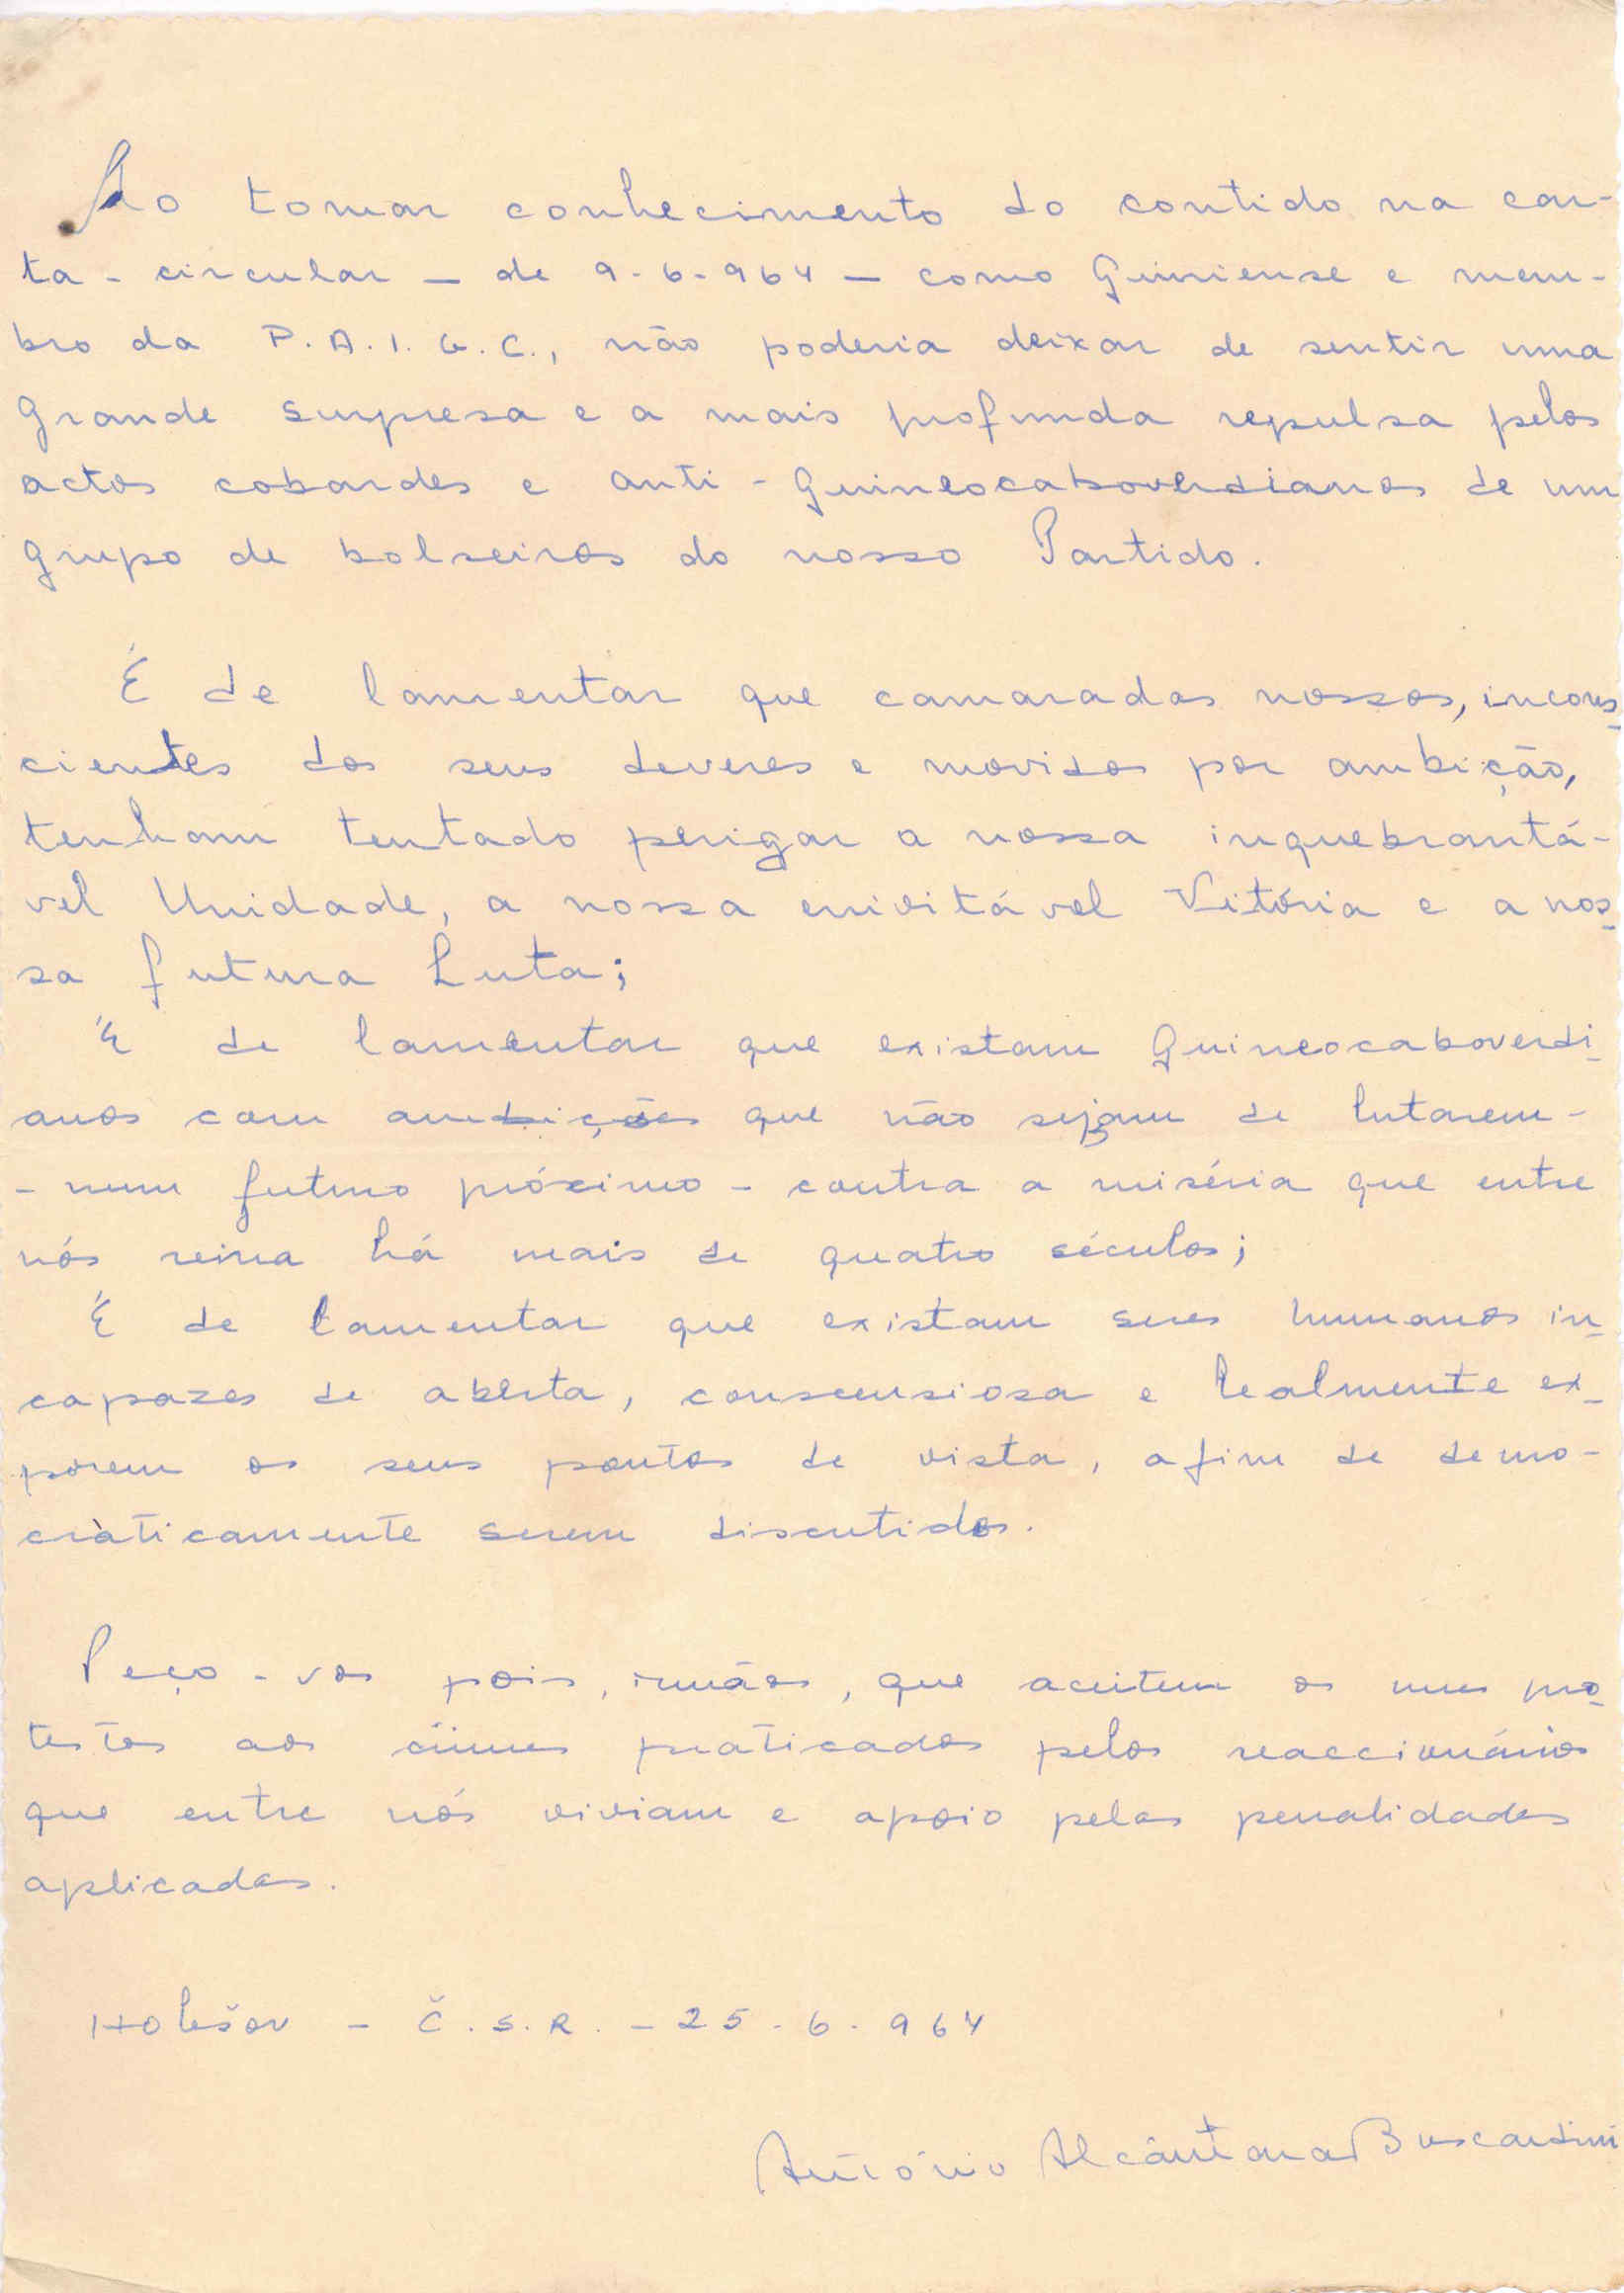 Ao tomar conhecimento do contido na car-
ta - circular - de 9-6-964 - como Guiniense e mem-
bro da P.A.I.G.C., não poderia deixar de sentir uma
Grande surpresa e a mais profunda repulsa pelos
actos cobardes e anti-Guineocaboverdianos de um
grupo de bolseiros do nosso Partido.
É de lamentar que camaradas nossos, incons-
cientes dos seus deveres e movidos por ambição,
tenham tentado perigar a nossa inquebrantá-
vel Unidade, a nossa enivitável Vitória e a nos-
sa futura Luta;
É de lamentar que existam Guineocaboverdi-
anos com ambições que não sejam de lutarem-
- num futuro próximo - contra a miséria que entre
nós reina há mais de quatro séculos;
É de lamentar que existam seres humanos in-
capazes de aberta, conscensiosa e lealmente ex-
porem os seus pontos de vista, afim de demo-
cràticamente serem discutidos.
Peço-vos pois, irmãos, que aceitem os meus pro-
testos aos crimes praticados pelos reaccionários
que entre nós viviam e apoio pelas penalidades
aplicadas.
Holešov - Č.S.R. - 25-6-964
António Alcântara Buscardini